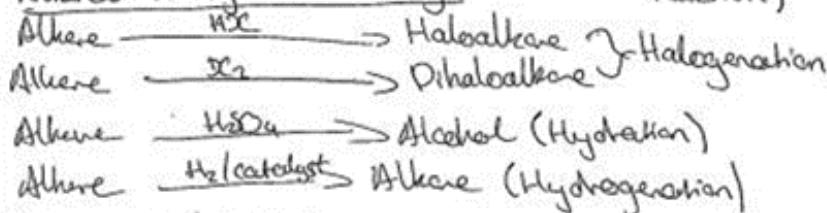 Alkene HX → Haloalkane } Halogenation
Alkene X2 → Dihaloalkane
Alkene H2SO4 → Alcohol (Hydration)
Alkene H2/catalyst → Alkane (Hydrogenation)